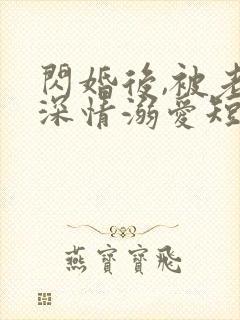 閃婚後,被老
深情溺愛短
燕寶寶飛